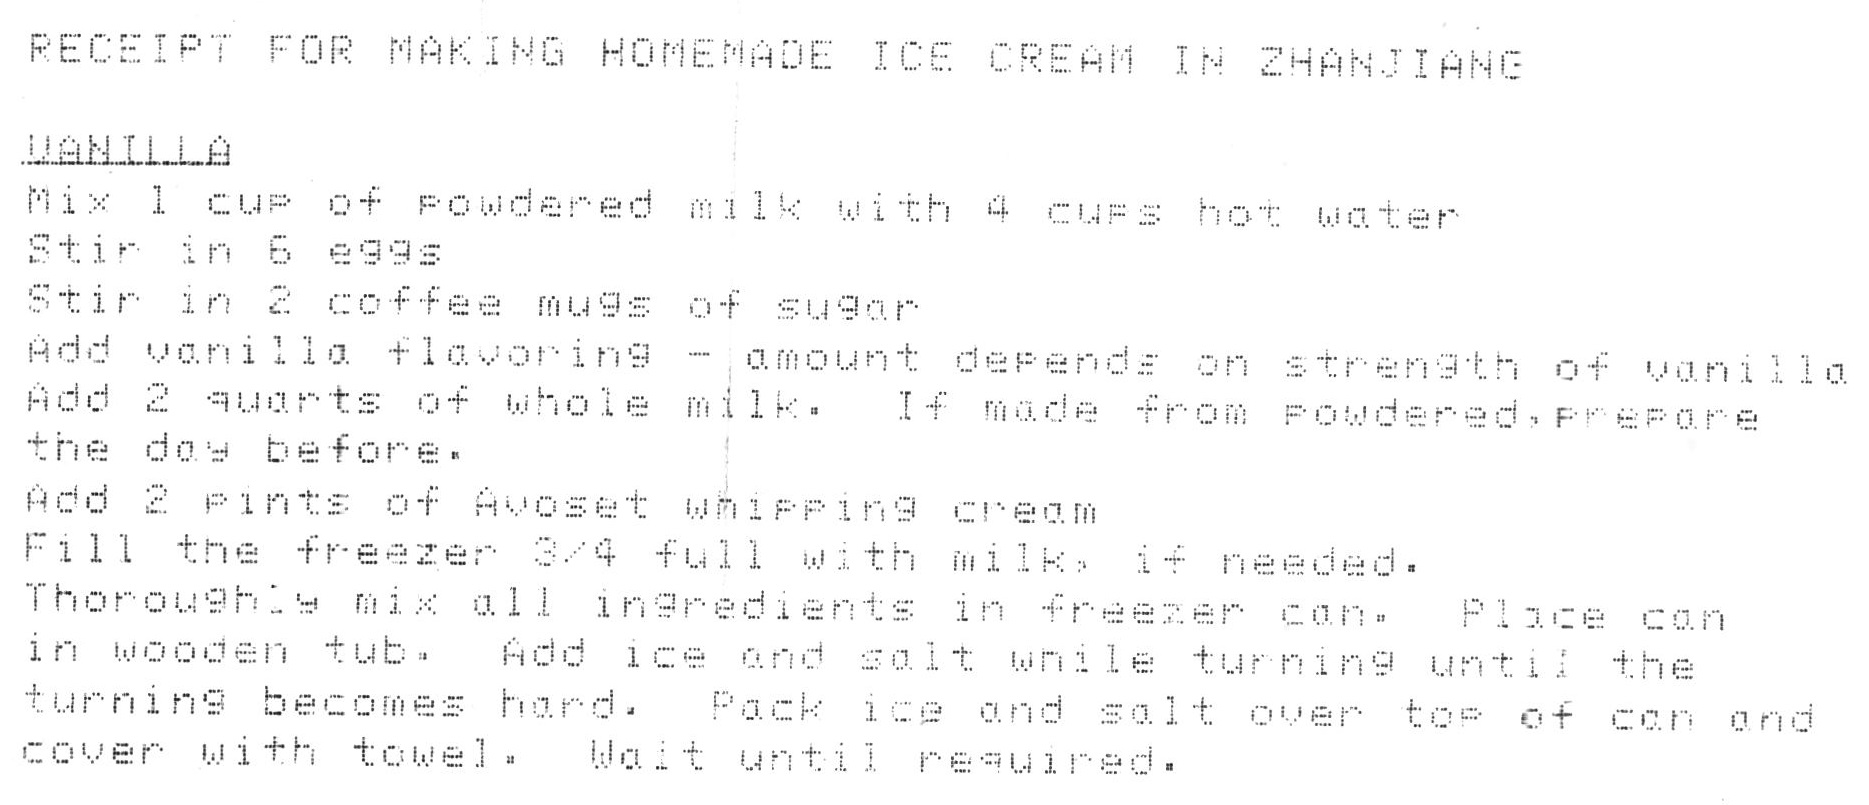 RECEIPT FOR MAKING HOMEMADE ICE CREAM IN ZHANJIANG
VANILLA
Mix 1 cup of powdered milk with 4 cups hot water
Stir in 6 eggs
Stir in 2 coffee mugs of sugar
Add vanilla flavoring - amount depends on strength of vanilla
Add 2 quarts of whole milk.  If made from powdered,prepare
the day before.
Add 2 pints of Avoset whipping cream
Fill the freezer 3/4 full with milk, if needed.
Thoroughly mix all ingredients in freezer can.  Place can
in wooden tub.  Add ice and salt while turning until the
turning becomes hard.  Pack ice and salt over top of can and
cover with towel.  Wait until required.